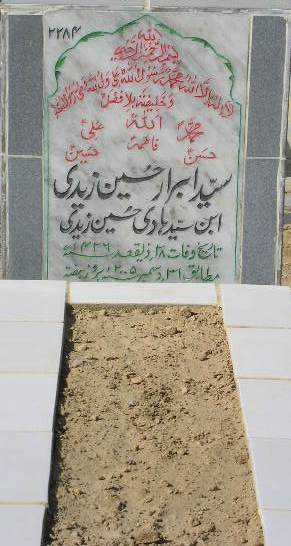 ۲۲۸۴
بسم اللہ الرحمن الرحیم
لا الہ الا اللہ محمد رسول اللہ علی ولی اللہ وصی رسول اللہ
و خلیفتہ بلا فصل
محمدؐ اللہ علیؑ
حسنؑ فاطمہؑ حسینؑ
سیّد ابرار حسین زیدی
ابن سیّد ہادی حسین زیدی
تاریخ وفات ۲۸ ذیقعد ۱۴۲۶ھ
مطابق ۳۱ دسمبر ۲۰۰۵ء بروز ہفتہ